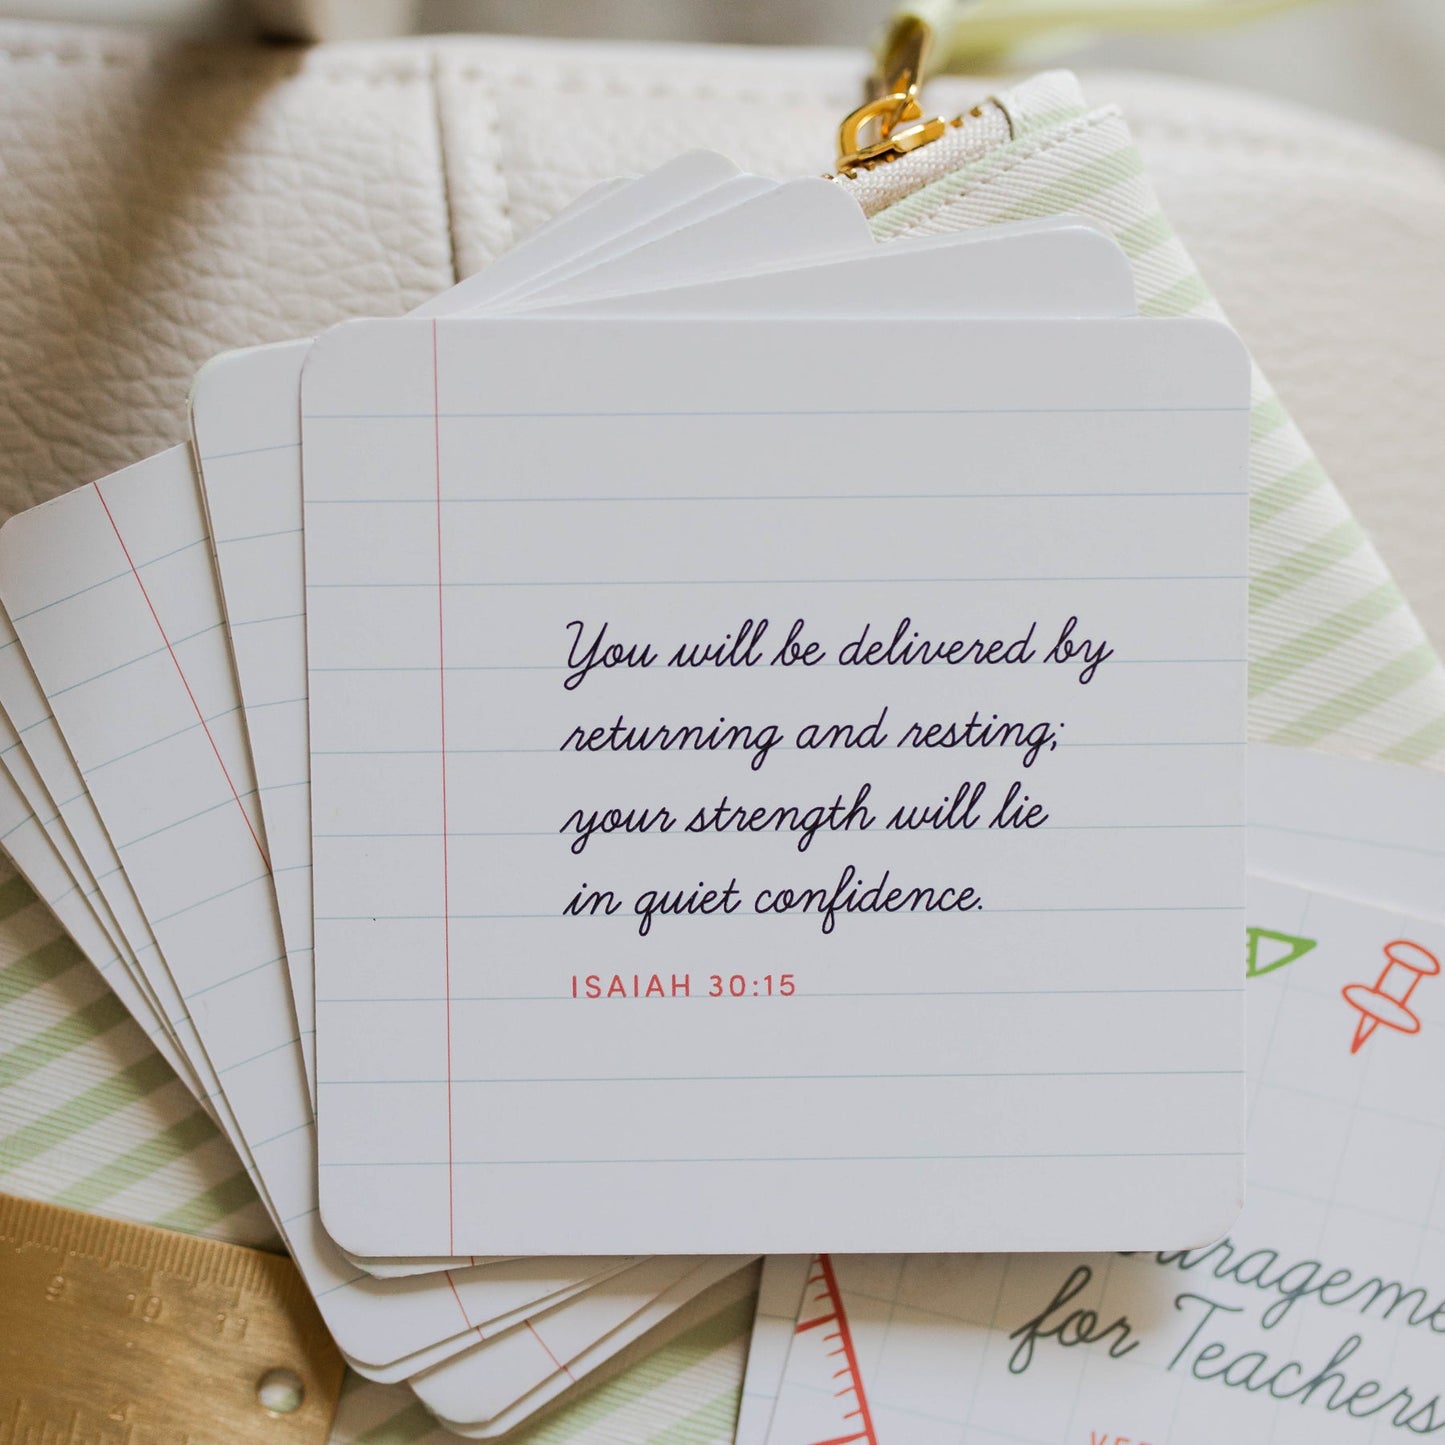 You will be delivered by
returning and resting;
your strength will lie
in quiet confidence.
ISAIAH 30:15
for Teachers
9 10 11